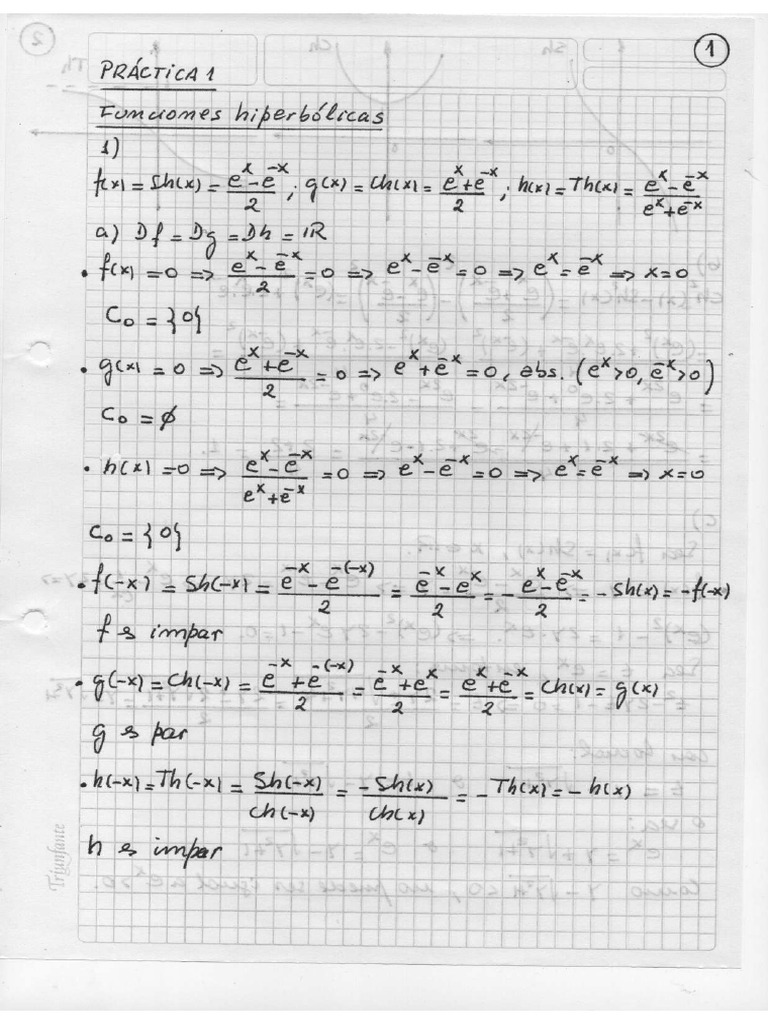 1
PRÁCTICA 1
Funciones hiperbólicas
1)
f(x) = Sh(x) = (e^x - e^-x)/2 ; g(x) = Ch(x) = (e^x + e^-x)/2 ; h(x) = Th(x) = (e^x - e^-x)/(e^x + e^-x)
a) Df = Dg = Dh = ℝ
• f(x) = 0 => (e^x - e^-x)/2 = 0 => e^x - e^-x = 0 => e^x = e^-x => x = 0
C₀ = {0}
• g(x) = 0 => (e^x + e^-x)/2 = 0 => e^x + e^-x = 0, abs. (e^x > 0, e^-x > 0)
C₀ = ∅
• h(x) = 0 => (e^x - e^-x)/(e^x + e^-x) = 0 => e^x - e^-x = 0 => e^x = e^-x => x = 0
C₀ = {0}
• f(-x) = Sh(-x) = (e^-x - e^-(-x))/2 = (e^-x - e^x)/2 = - (e^x - e^-x)/2 = - Sh(x) = - f(-x)
f es impar
• g(-x) = Ch(-x) = (e^-x + e^-(-x))/2 = (e^-x + e^x)/2 = (e^x + e^-x)/2 = Ch(x) = g(x)
g es par
• h(-x) = Th(-x) = Sh(-x)/Ch(-x) = - Sh(x)/Ch(x) = - Th(x) = - h(x)
h es impar
Triunfante